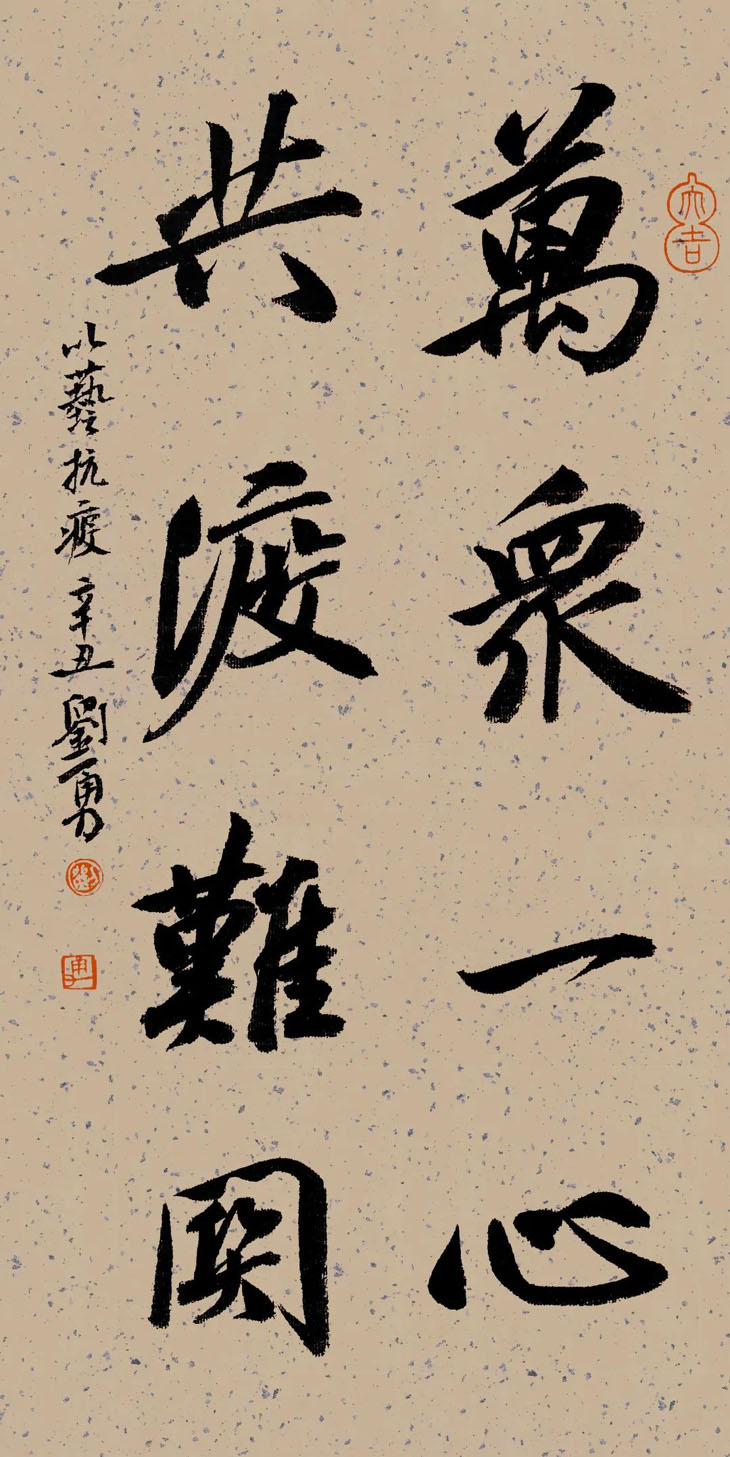 萬衆一心
共渡難關
以藝抗疫 辛丑 劉勇
大吉